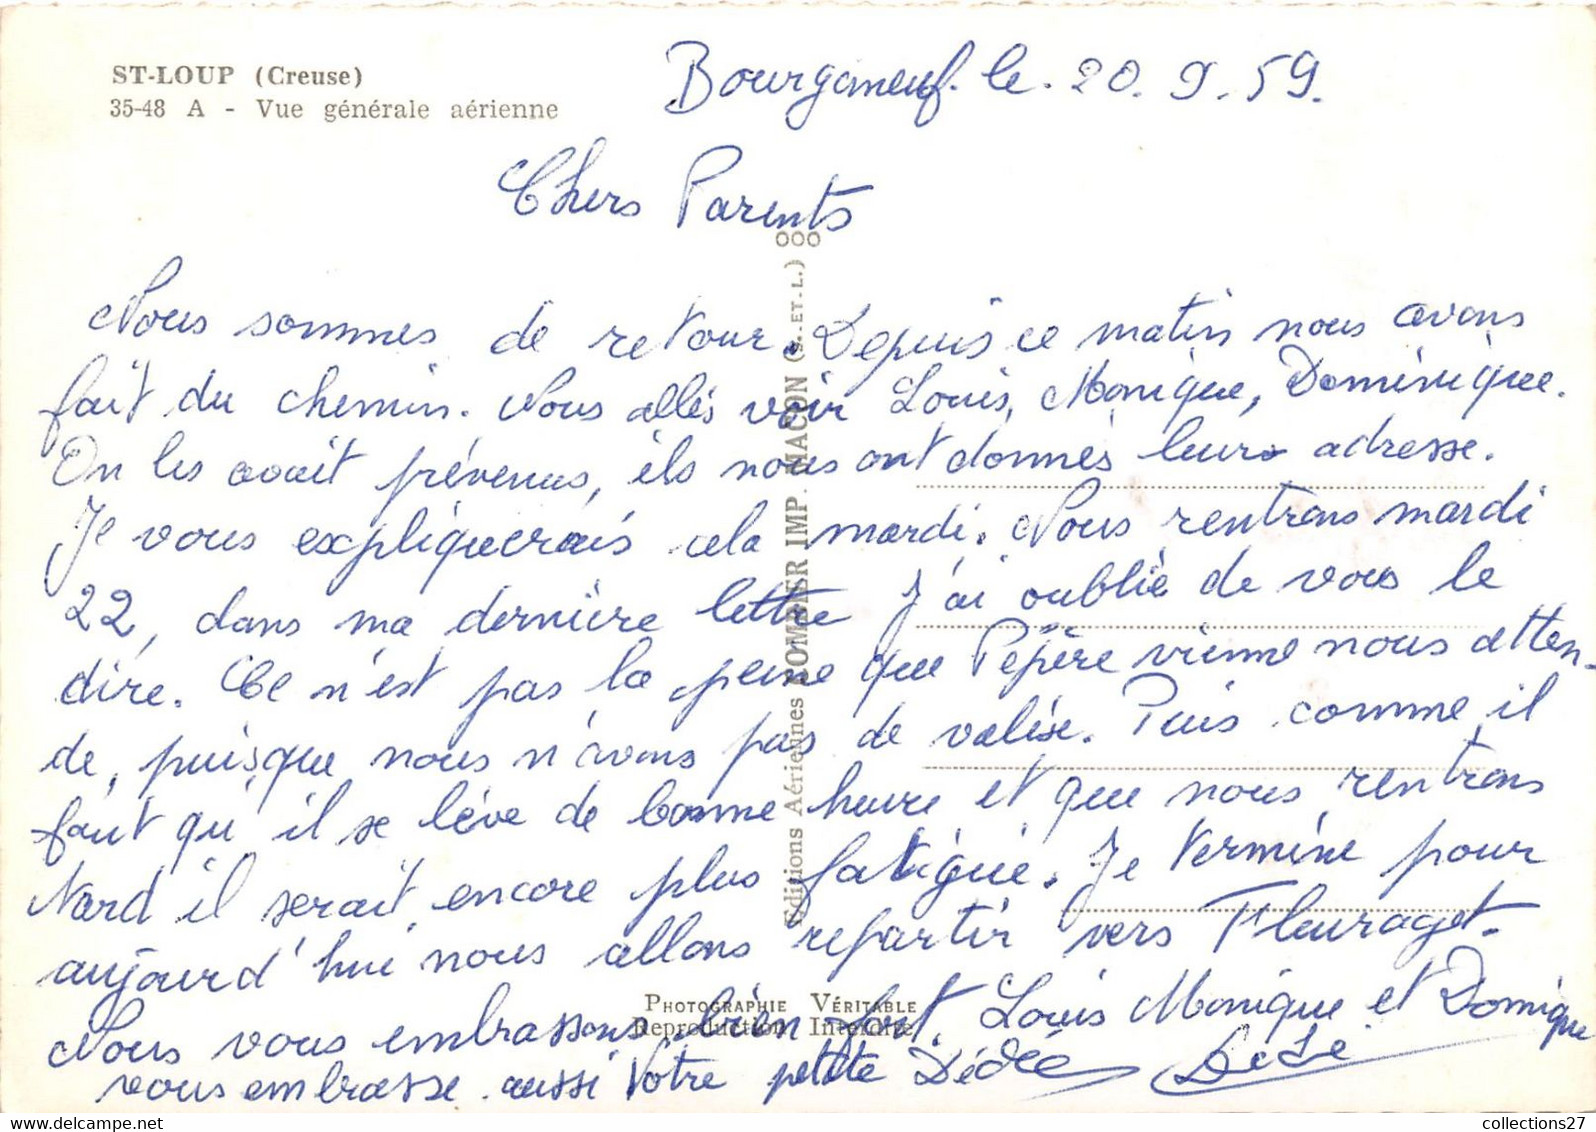 ST-LOUP (Creuse)
35-48 A - Vue générale aérienne
Bourganeuf. le. 20. 9. 59.
Chers Parents
Nous sommes de retour. Depuis ce matin nous avons
fait du chemin. Nous allés voir Louis, Monique, Dominique.
On les avait prévenus, ils nous ont donnés leur adresse.
Je vous expliquerais cela mardi. Nous rentrons mardi
22, dans ma dernière lettre J'ai oublié de vous le
dire. Ce n'est pas la peine que Pépère vienne nous atten-
de, puisque nous n'avons pas de valise. Puis comme il
faut qu'il se lève de bonne heure et que nous rentrons
tard il serait encore plus fatigué. Je termine pour
aujourd'hui nous allons repartir vers Fleuraget.
Nous vous embrassons bien fort. Louis Monique et Domique
vous embrasse aussi Votre petite Dédée Dédé
Editions Aériennes COMBIER IMP. MACON (S.-ET-L.)
PHOTOGRAPHIE VÉRITABLE
Reproduction Interdite
collections27